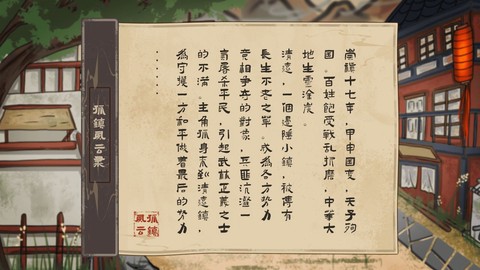 崇禎十七年，甲申国变，天子殉
国。百姓飽受戰乱折磨，中華大
地生靈塗炭。
清遠，一個邊陲小鎮，被傳有
長生不老之翠。成為各方勢力
竟相爭奪的對象，兵匪沆瀣一
氣屠杀平民，引起武林正義之士
的不滿。主角孤身來到清遠鎮，
為守護一方和平做着最后的努力
......
孤鎮風云录
孤鎮
風云